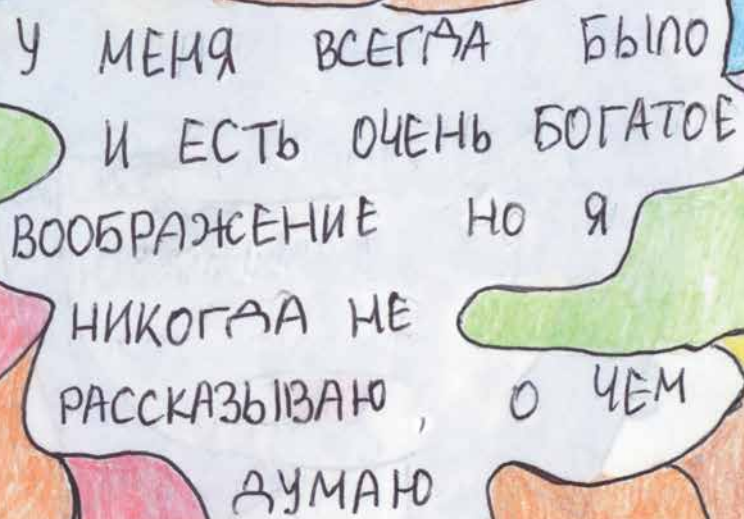 У МЕНЯ ВСЕГДА БЫЛО
И ЕСТЬ ОЧЕНЬ БОГАТОЕ
ВООБРАЖЕНИЕ НО Я
НИКОГДА НЕ
РАССКАЗЫВАЮ, О ЧЕМ
ДУМАЮ